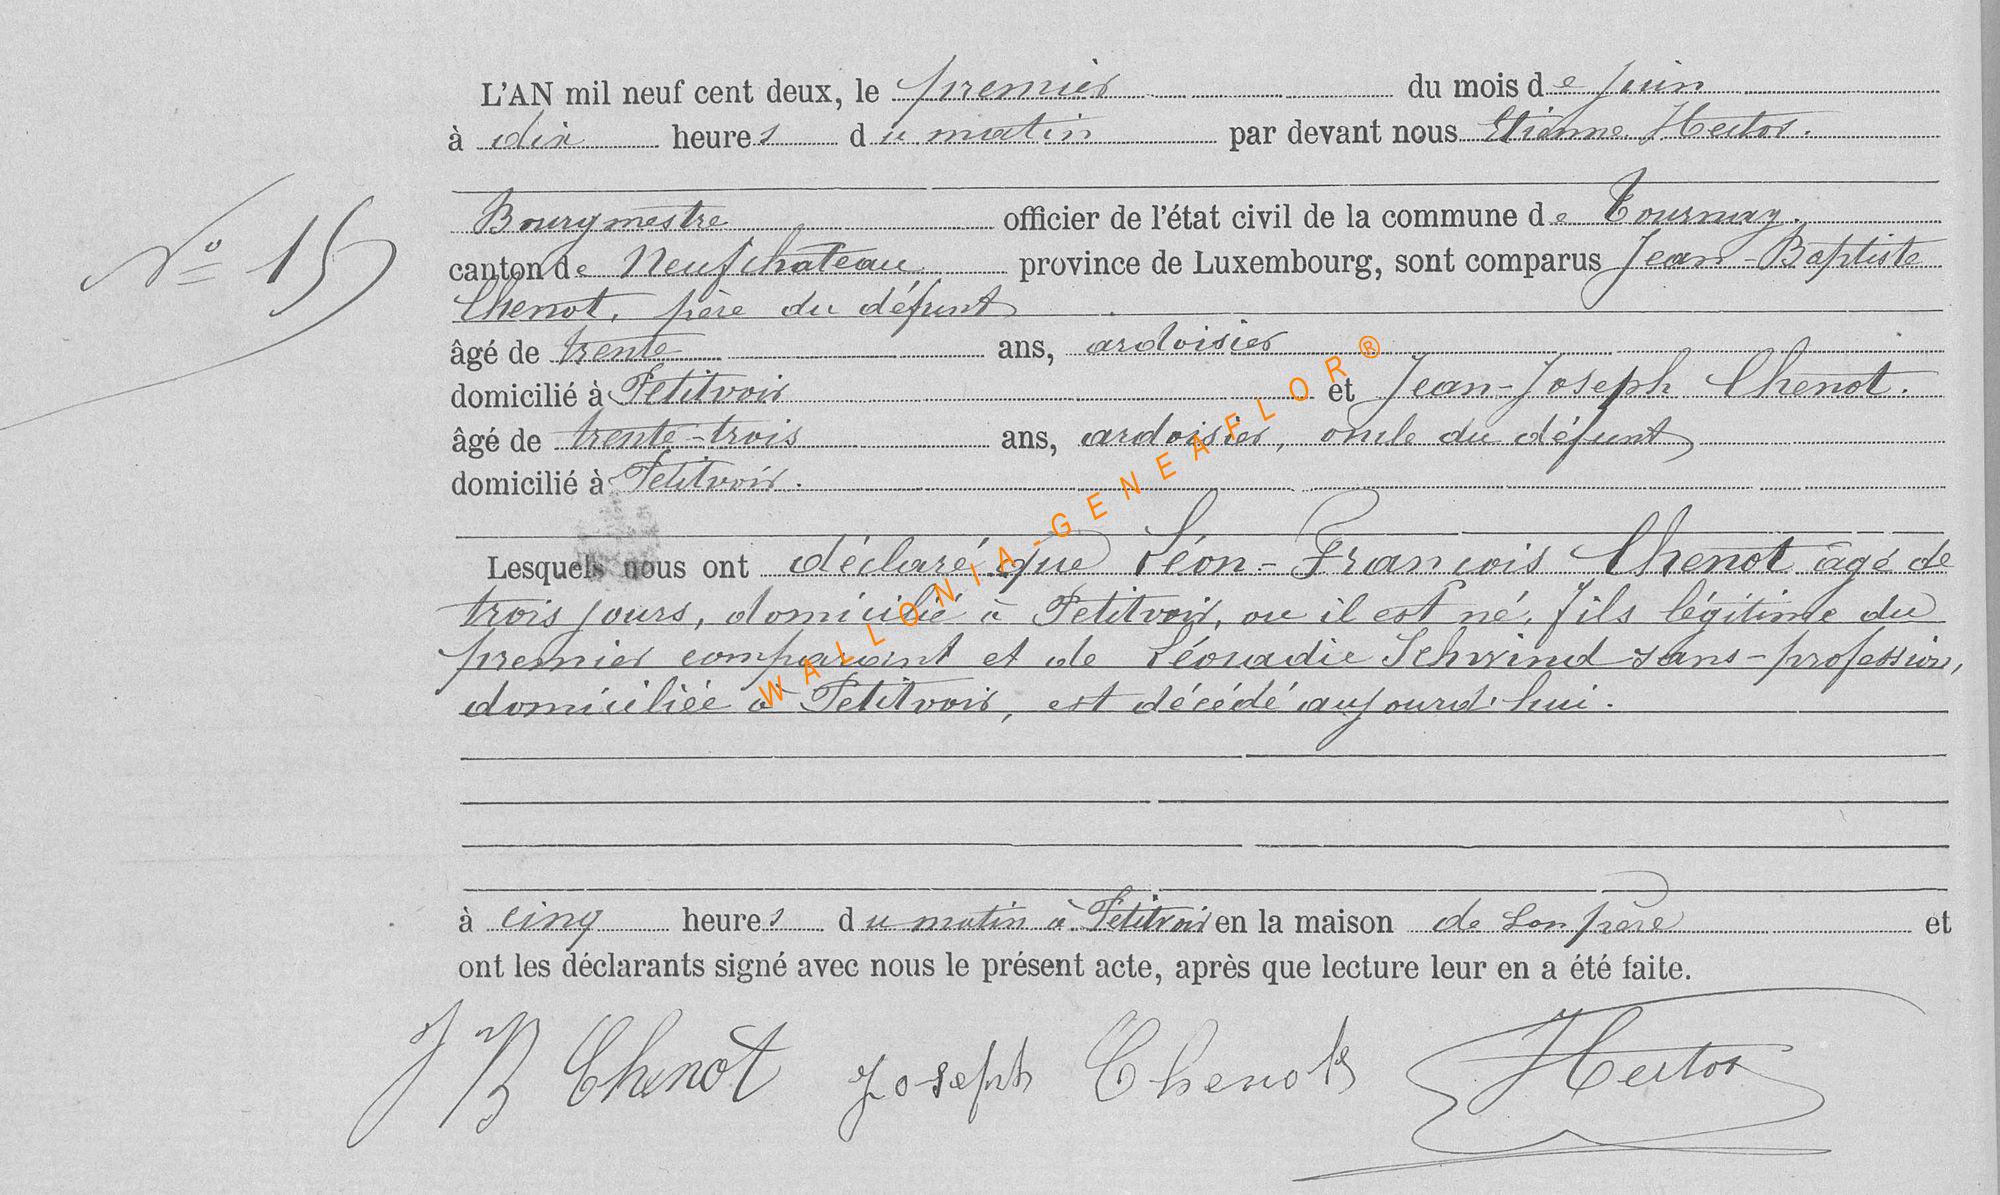 L'AN mil neuf cent deux, le premier du mois de juin
à dix heures du matin par devant nous Etienne Hector.
Bourgmestre officier de l'état civil de la commune de Tournay.
N° 15
canton de Neufchateau province de Luxembourg, sont comparus Jean-Baptiste
Chenot, père du défunt
âgé de trente ans, ardoisier
domicilié à Petitvoir et Jean-Joseph Chenot.
âgé de trente-trois ans, ardoisier, oncle du défunt
domicilié à Petitvoir.
Lesquels nous ont déclaré que Léon-François Chenot âgé de
trois jours, domicilié à Petitvoir, ou il est né, fils légitime du
premier comparant et de Léonadie Schwind sans-profession,
domiciliée à Petitvoir, est décédé aujourd'hui.
à cinq heures du matin à Petitvoir en la maison de son père et
ont les déclarants signé avec nous le présent acte, après que lecture leur en a été faite.
J B Chenot Joseph Chenot Hector
WALLONIA-GENEAFLOR®